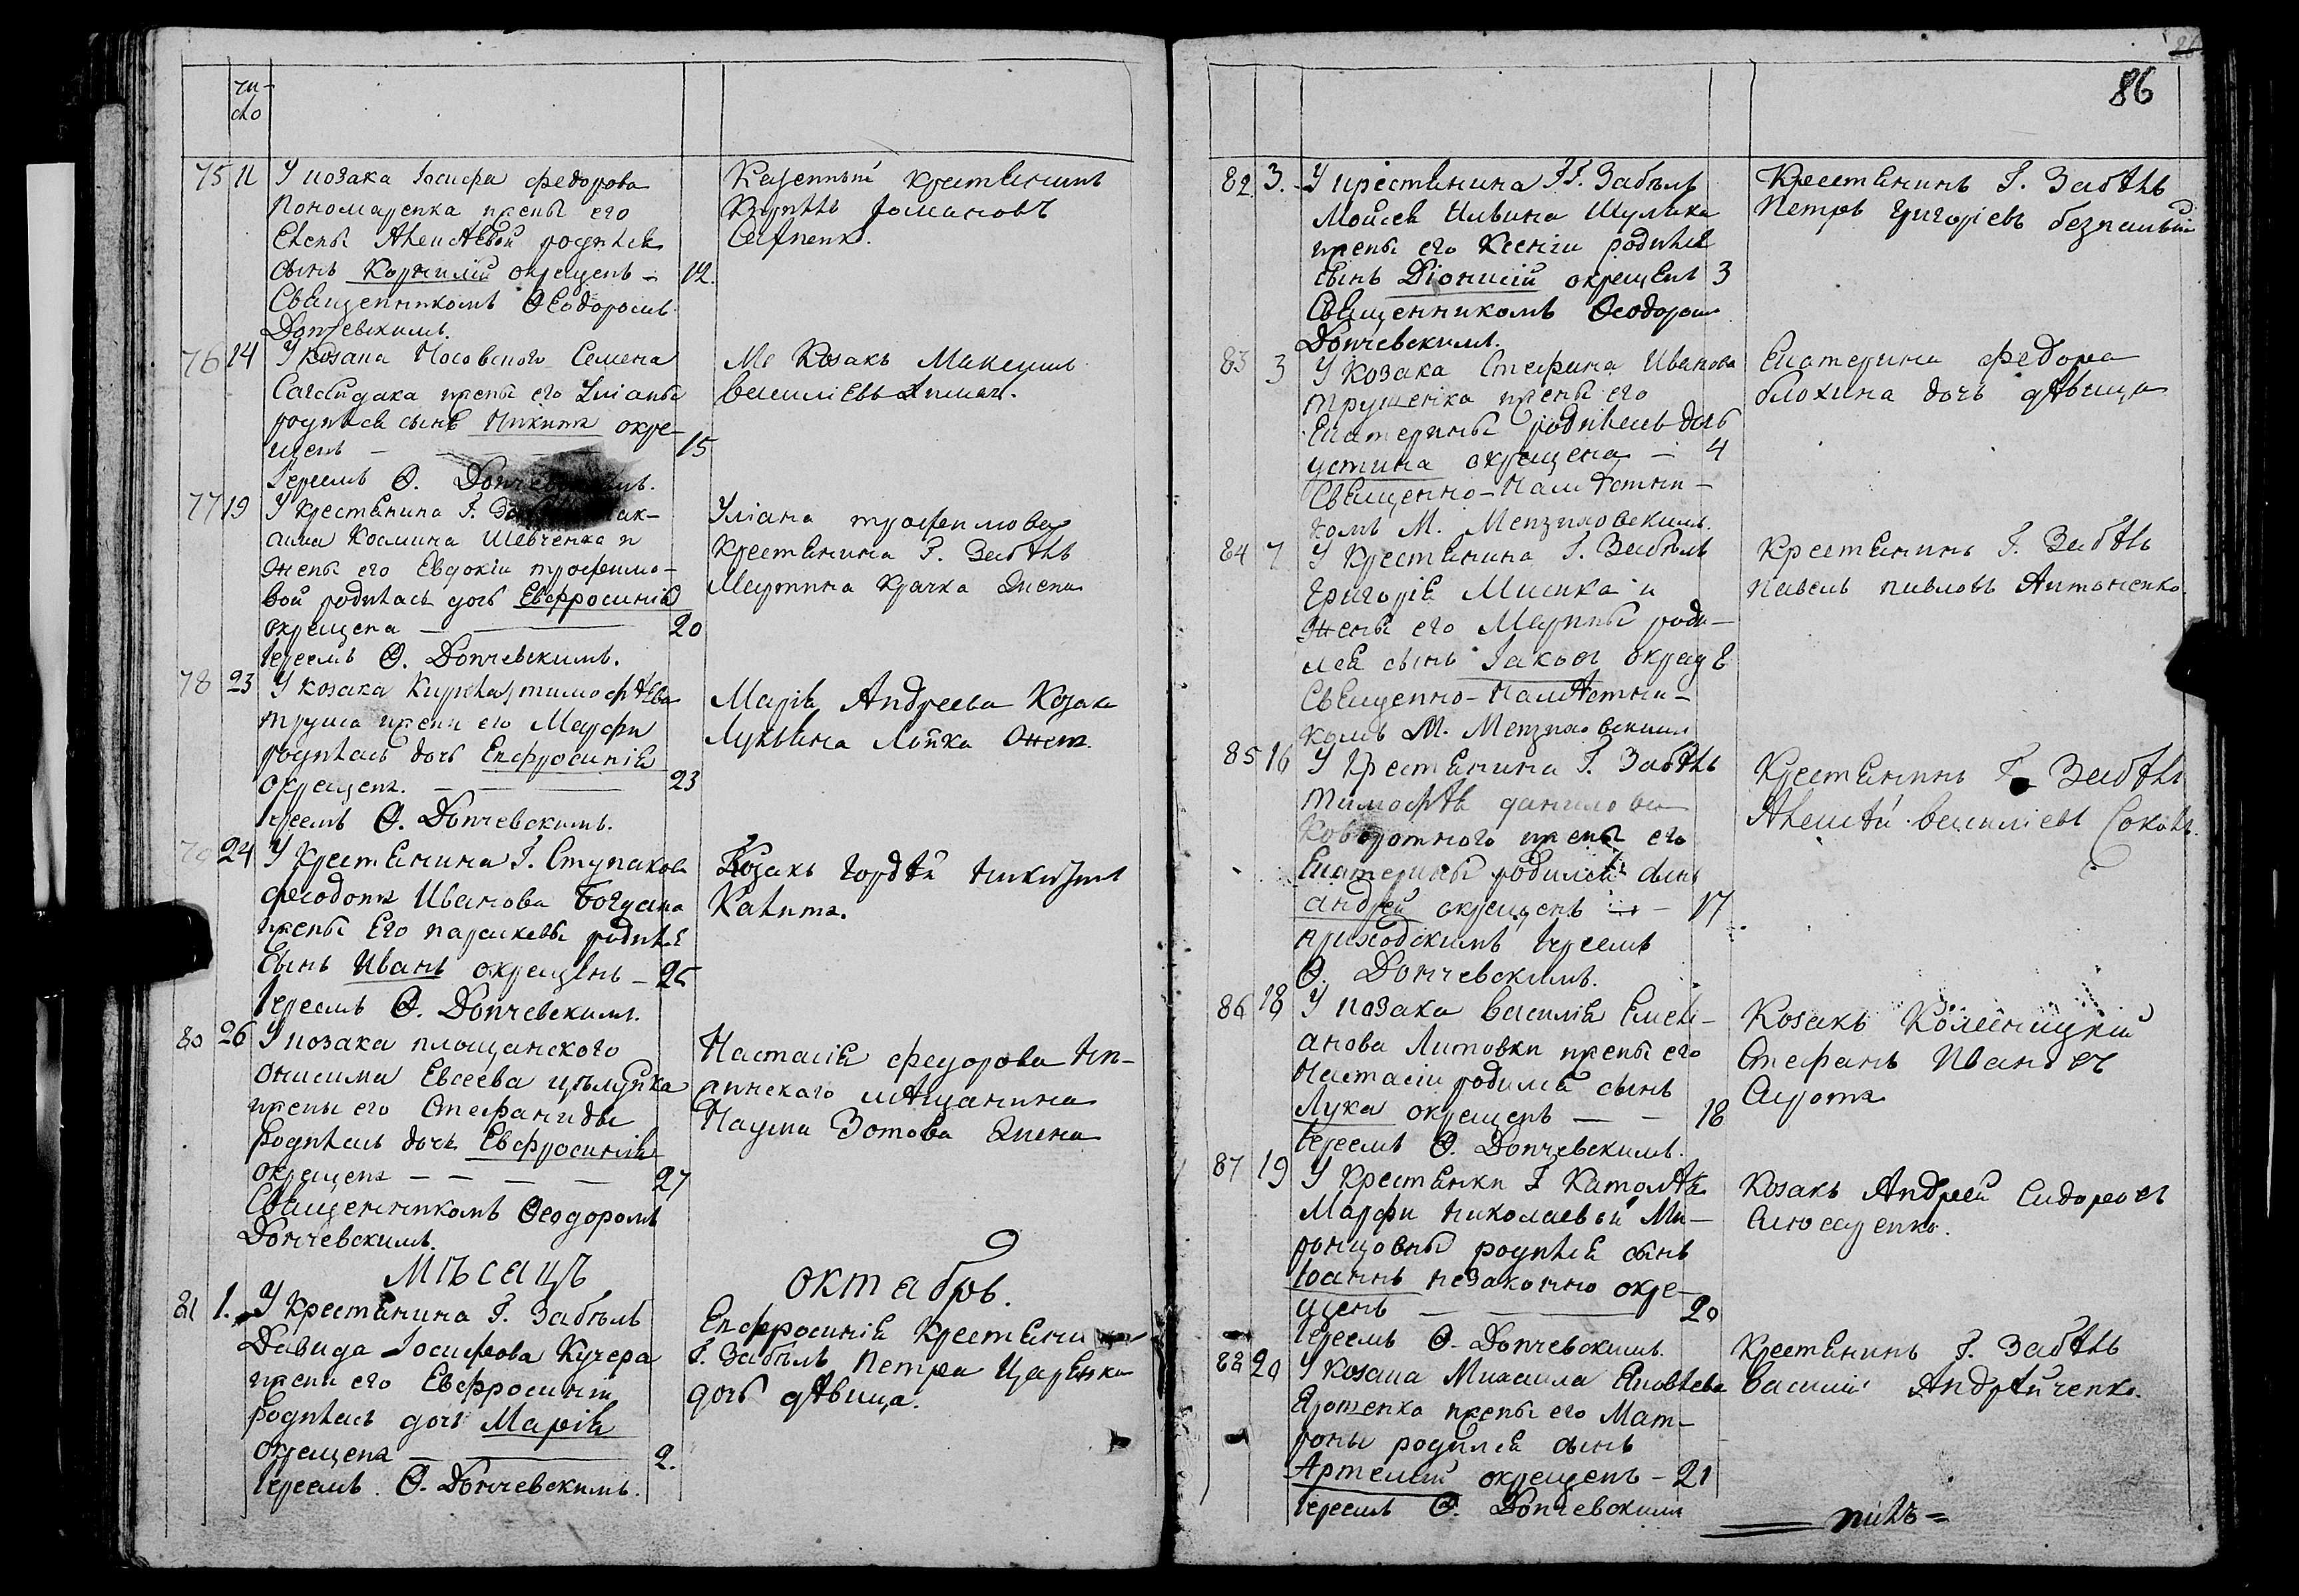 чи-
сло
75 11 У козака Іосифа Федорова
Пономаренка жены его
Елены Алексѣевой родился
сынъ Корнилій окрещенъ — 12.
Священникомъ Ѳеодоромъ
Дончевскимъ.
Казенный крестьянинъ
Кириллъ Романовъ
76 14 У козака Носовского Семена
Сагайдака жены его Уліаны
родился сынъ Никита окре-
щенъ — 15
Іереемъ Ѳ. Дончевскимъ.
Козакъ Максимъ
Василіевъ
77 19 У крестьянина Г.
Космина Шевченка и
жены его Евдокіи Трофимо-
вой родилась дочь Евфросинія
окрещена — 20
Іереемъ Ѳ. Дончевскимъ.
Уліана Трофимова
крестьянина Г. Забѣлъ
Мартина Крачка жена
78 23 У козака Кирила Тимофѣева
Труша жени его Марфи
родилась дочь Евфросинія
окрещена. — 23
Іереемъ Ѳ. Дончевскимъ.
Марія Андреева Козака
Лукьяна Лойка жена.
79 24 У крестьянина Г. Ступакова
Феодота Иванова Богдана
жены его Параскевы родился
сынъ Иванъ окрещенъ — 25
Іереемъ Ѳ. Дончевскимъ.
Козакъ Гордѣй Никитинъ
Калита.
80 26 У козака площанского
Онисима Евсеева
жены его Стефаниды
родилась дочь Евфросинія
окрещена — — — — 27
Священникомъ Ѳеодоромъ
Дончевскимъ.
Настасія Федорова
мѣщанина
Наума Зотова жена
Мѣсяцъ октябрь.
81 1. У крестьянина Г. Забѣлъ
Давида Іосифова Кучера
жени его Евфросиніи
родилась дочь Марія
окрещена — 2.
Іереемъ Ѳ. Дончевскимъ.
Евфросинія крестьянина
Г. Забѣлъ Петра Царенка
дочь дѣвица.
86
82 3. У крестьянина ГГ. Забѣлъ
Мойсея Ильина Шулика
жены его Ксеніи родился
сынъ Діонисій окрещенъ 3
Священникомъ Ѳеодоромъ
Дончевскимъ.
Крестьянинъ Г. Забѣлъ
Петръ Григоріевъ
83 3 У козака Стефана Иванова
Трушенка жены его
Екатерины родилась дочь
Устина окрещена — 4
Священно-Намѣстни-
комъ М.
Екатерина Федора
Блохина дочь дѣвица
84 7 У крестьянина Г. Забѣлъ
Григорія Мисика и
жены его Марины роди-
лся сынъ Іаковъ окрещ 8
Священно-Намѣстни-
комъ М.
Крестьянинъ Г. Забѣлъ
Павелъ Павловъ Антоненко
85 16 У крестьянина Г. Забѣлъ
Тимофѣя Данилова
Коворотного жены его
Екатерины родился сынъ
Андрей окрещенъ — 17
приходскимъ Іереемъ
Ѳ. Дончевскимъ.
Крестьянинъ Г. Забѣлъ
Алексѣй Василіевъ Соколъ.
86 18 У козака Василія Емелі-
анова Литовки жены его
Настасіи родился сынъ
Лука окрещенъ — — 18
Іереемъ Ѳ. Дончевскимъ.
Козакъ Колесницкій
Стефанъ Ивановъ
Сирота
87 19 У крестьянки Г
Марфи Николаевой Ми-
ронцовны родился сынъ
Іоаннъ незаконно окре-
щенъ — 20
Іереемъ Ѳ. Дончевскимъ.
Козакъ Андрей Сидоровъ
Слюсаренко.
88 20 У козака Михаила Яковлева
жены его Мат-
роны родился сынъ
Артемій окрещенъ — 21
Іереемъ Ѳ. Дончевскимъ
Крестьянинъ Г. Забѣлъ
Василій Андрѣйченко.